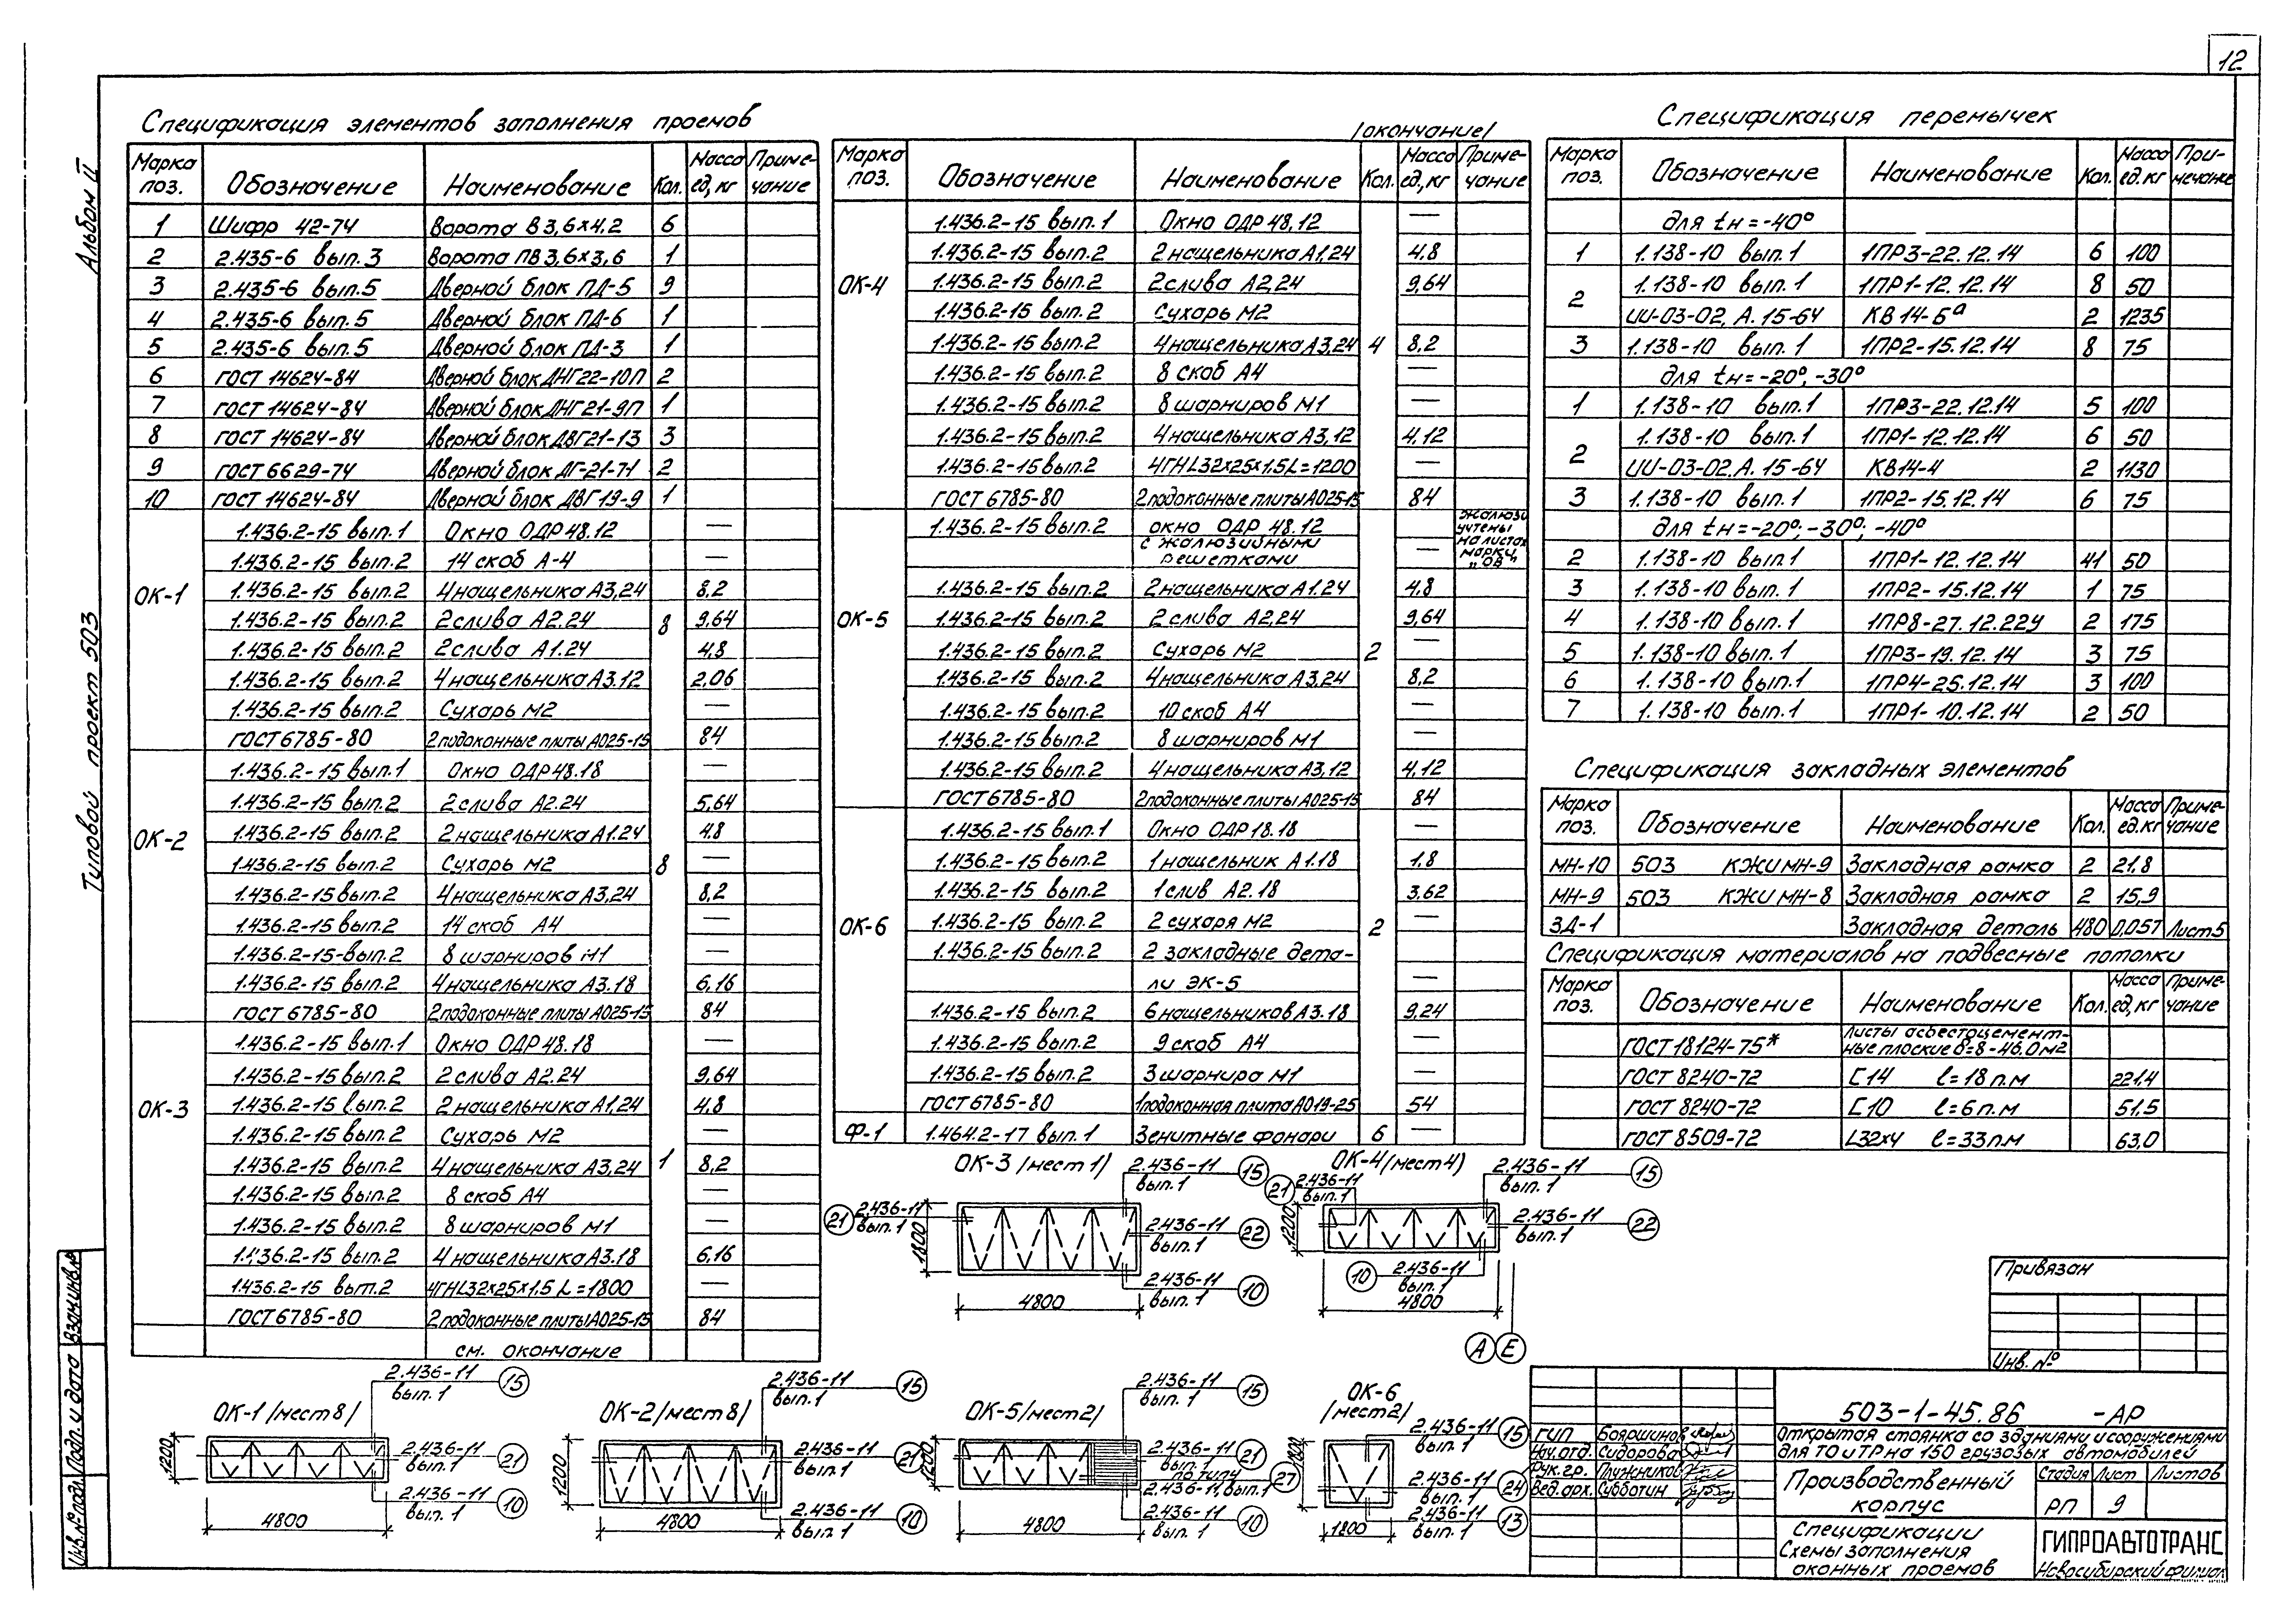 12
Альбом II
Типовой проект 503
Спецификация элементов заполнения проемов
Марка поз. Обозначение Наименование Кол. Масса ед, кг Примечание
1 Шифр 42-74 Ворота В 3,6х4,2 6
2 2.435-6 вып. 3 Ворота ПВ 3,6х3,6 1
3 2.435-6 вып.5 Дверной блок ПД-5 9
4 2.435-6 вып.5 Дверной блок ПД-6 1
5 2.435-6 вып.5 Дверной блок ПД-3 1
6 ГОСТ 14624-84 Дверной блок ДНГ22-10П 2
7 ГОСТ 14624-84 Дверной блок ДНГ21-9П 1
8 ГОСТ 14624-84 Дверной блок ДВГ21-13 3
9 ГОСТ 6629-74 Дверной блок ДГ-21-7Л 2
10 ГОСТ 14624-84 Дверной блок ДВГ 19-9 1
ОК-1 8
1.436.2-15 вып.1 Окно ОДР 48.12 —
1.436.2-15 вып.2 14 скоб А-4 —
1.436.2-15 вып.2 4 нащельника А3,24 8,2
1.436.2-15 вып.2 2 слива А2.24 9,64
1.436.2-15 вып.2 2 слива А1.24 4,8
1.436.2-15 вып.2 4 нащельника А3.12 2,06
1.436.2-15 вып.2 Сухарь М2
ГОСТ 6785-80 2 подоконные плиты АО25-15 84
ОК-2 8
1.436.2-15 вып.1 Окно ОДР 48.18 —
1.436.2-15 вып.2 2 слива А2.24 5,64
1.436.2-15 вып.2 2 нащельника А1.24 4.8
1.436.2-15 вып.2 Сухарь М2 —
1.436.2-15 вып.2 4 нащельника А3,24 8,2
1.436.2-15 вып.2 14 скоб А4 —
1.436.2-15-вып.2 8 шарниров М1 —
1.436.2-15 вып.2 4 нащельника А3.18 6,16
ГОСТ 6785-80 2 подоконные плиты АО25-15 84
ОК-3 1
1.436.2-15 вып.1 Окно ОДР 48.18 —
1.436.2-15 вып.2 2 слива А2.24 9,64
1.436.2-15 вып.2 2 нащельника А1,24 4,8
1.436.2-15 вып.2 Сухарь М2 —
1.436.2-15 вып.2 4 нащельника А3,24 8,2
1.436.2-15 вып.2 8 скоб А4 —
1.436.2-15 вып.2 8 шарниров М1 —
1.436.2-15 вып.2 4 нащельника А3.18 6,16
1.436.2-15 вып.2 4ГНL32х25х1.5 L=1800 —
ГОСТ 6785-80 2 подоконные плиты АО25-15 84
см. окончание
/окончание/
Марка поз. Обозначение Наименование Кол. Масса ед, кг Примечание
ОК-4 4
1.436.2-15 вып.1 Окно ОДР 48,12 —
1.436.2-15 вып.2 2 нащельника А1,24 4,8
1.436.2-15 вып.2 2 слива А2,24 9,64
1.436.2-15 вып.2 Сухарь М2
1.436.2-15 вып.2 4 нащельника А3,24 8,2
1.436.2-15 вып.2 8 скоб А4 —
1.436.2-15 вып.2 8 шарниров М1 —
1.436.2-15 вып.2 4 нащельника А3,12 4,12
1.436.2-15 вып.2 4ГНL32х25х1.5 L=1200 —
ГОСТ 6785-80 2 подоконные плиты АО25-15 84
ОК-5 2
1.436.2-15 вып.2 окно ОДР 48.12
с жалюзийными
решетками —
жалюзи
учтены
на листах
марки
„ОВ"
1.436.2-15 вып.2 2 нащельника А1.24 4,8
1.436.2-15 вып.2 2 слива А2,24 9,64
1.436.2-15 вып.2 Сухарь М2 —
1.436.2-15 вып.2 4 нащельника А3,24 8,2
1.436.2-15 вып.2 10 скоб А4 —
1.436.2-15 вып.2 8 шарниров М1 —
1.436.2-15 вып.2 4 нащельника А3,12 4,12
ГОСТ 6785-80 2 подоконные плиты АО25-15 84
ОК-6 2
1.436.2-15 вып.1 Окно ОДР 18.18 —
1.436.2-15 вып.2 1 нащельник А1.18 1,8
1.436.2-15 вып.2 1 слив А2.18 3,62
1.436.2-15 вып.2 2 сухаря М2 —
1.436.2-15 вып.2 2 закладные дета-
ли ЭК-5 —
1.436.2-15 вып.2 6 нащельников А3.18 9,24
1.436.2-15 вып.2 9 скоб А4 —
1.436.2-15 вып.2 3 шарнира М1 —
ГОСТ 6785-80 1 подоконная плита АО19-25 54
Ф-1 1.464.2-17 вып.1 Зенитные фонари 6 —
Спецификация перемычек
Марка поз. Обозначение Наименование Кол. Масса ед.кг Примечание
для tн=-40°
1 1.138-10 вып.1 1ПР3-22.12.14 6 100
2 1.138-10 вып.1 1ПР1-12.12.14 8 50
ИИ-03-02, А. 15-64 КВ 14-6а 2 1235
3 1.138-10 вып.1 1ПР2-15.12.14 8 75
для tн=-20°,-30°
1 1.138-10 вып.1 1ПР3-22.12.14 5 100
2 1.138-10 вып.1 1ПР1-12.12.14 6 50
ИИ-03-02. А. 15-64 КВ14-4 2 1130
3 1.138-10 вып.1 1ПР2-15.12.14 6 75
для tн=-20°; -30°; -40°
2 1.138-10 вып.1 1ПР1-12.12.14 41 50
3 1.138-10 вып.1 1ПР2-15.12.14 1 75
4 1.138-10 вып.1 1ПР8-27.12.22У 2 175
5 1.138-10 вып.1 1ПР3-19.12.14 3 75
6 1.138-10 вып.1 1ПР4-25.12.14 3 100
7 1.138-10 вып.1 1ПР1-10.12.14 2 50
Спецификация закладных элементов
Марка поз. Обозначение Наименование Кол. Масса ед.кг Примечание
МН-10 503 КЖИ МН-9 Закладная рамка 2 21.8
МН-9 503 КЖИ МН-8 Закладная рамка 2 15,9
ЗД-1 Закладная деталь 480 0,057 Лист 5
Спецификация материалов на подвесные потолки
Марка поз. Обозначение Наименование Кол. Масса ед, кг Примечание
ГОСТ 18124-75* Листы асбестоцемент-
ные плоские δ=8-46.0м2
ГОСТ 8240-72 [14 l=18п.м 221,4
ГОСТ 8240-72 [10 l=6п.м 51,5
ГОСТ 8509-72 L32х4 l=33п.м 63,0
ОК-3 /мест 1)
2.436-11 вып.1 15
21 2.436-11 вып.1
2.436-11 вып.1 22
2.436-11 вып.1 10
1800
4800
ОК-4 /мест 4)
2.436-11 вып.1 15
21 2.436-11 вып.1
2.436-11 вып.1 22
10 2.436-11 вып.1
1200
4800
А Е
ОК-1 /мест 8/
2.436-11 вып.1 15
2.436-11 вып.1 21
2.436-11 вып.1 10
1200
4800
ОК-2 /мест 8/
2.436-11 вып.1 15
2.436-11 вып.1 21
2.436-11 вып.1 10
1200
4800
ОК-5 /мест 2/
2.436-11 вып.1 15
2.436-11 вып.1 21
по типу
2.436-11 вып.1 27
2.436-11 вып.1 10
1200
4800
ОК-6
/мест 2/
2.436-11 вып.1 15
2.436-11 вып.1 24
2.436-11 вып.1 13
1800
Привязан
Инв. №
503-1-45.86 -АР
Открытая стоянка со зданиями и сооружениями
для ТО и ТР на 150 грузовых автомобилей
ГИП Бояршинов
Нач. отд. Сидорова
Рук. гр. Плужников
Вед. арх. Субботин
Производственный
корпус
Стадия Лист Листов
РП 9
Спецификации
Схемы заполнения
оконных проемов
ГИПРОАВТОТРАНС
Новосибирский филиал
Инв. № подл. Подп. и дата Взам. инв. №